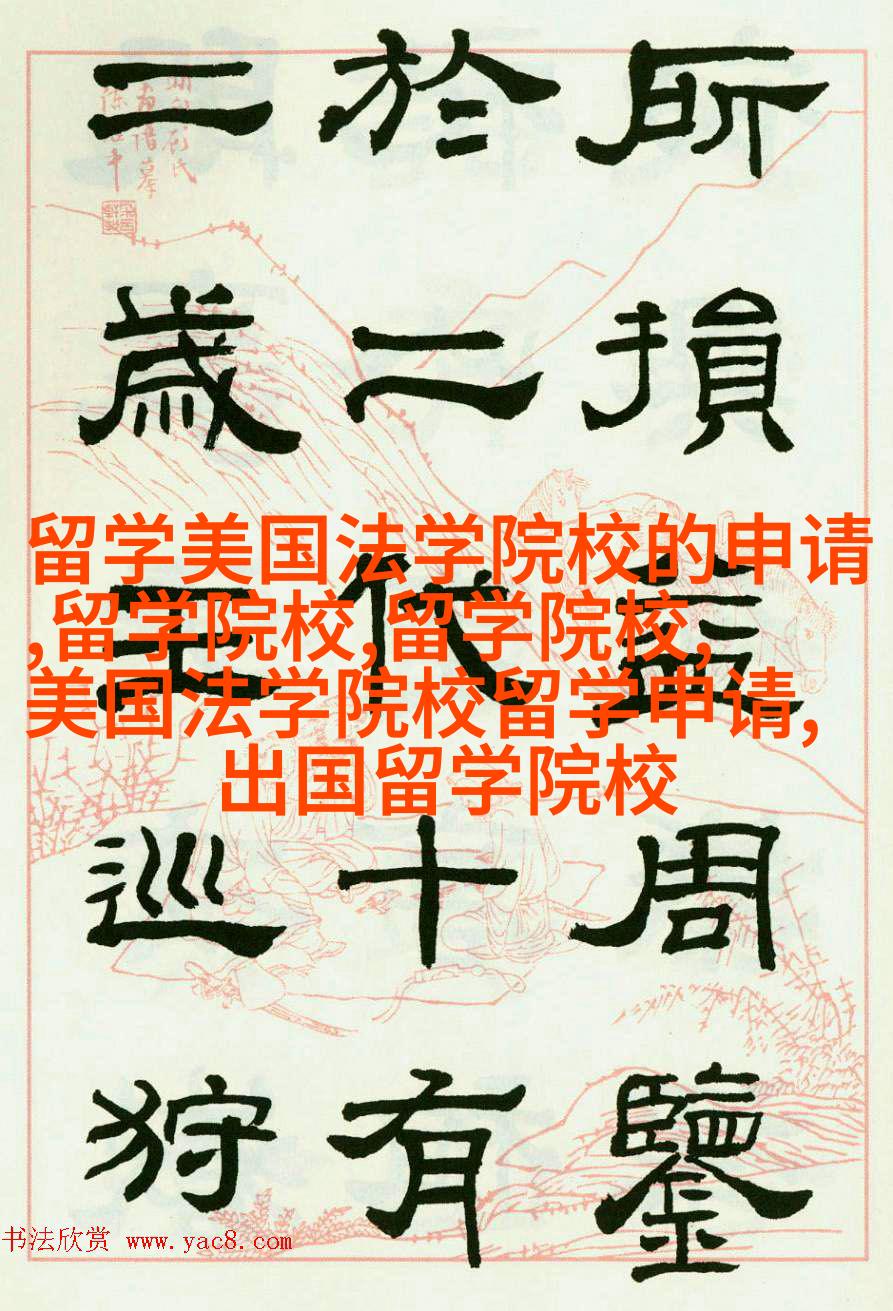 所損益周鑒
於二代十有
二歲王巡狩
留学美国法学院校的申请
,留学院校,留学院校,
美国法学院校留学申请,
出国留学院校
书法欣赏 www.yac8.com